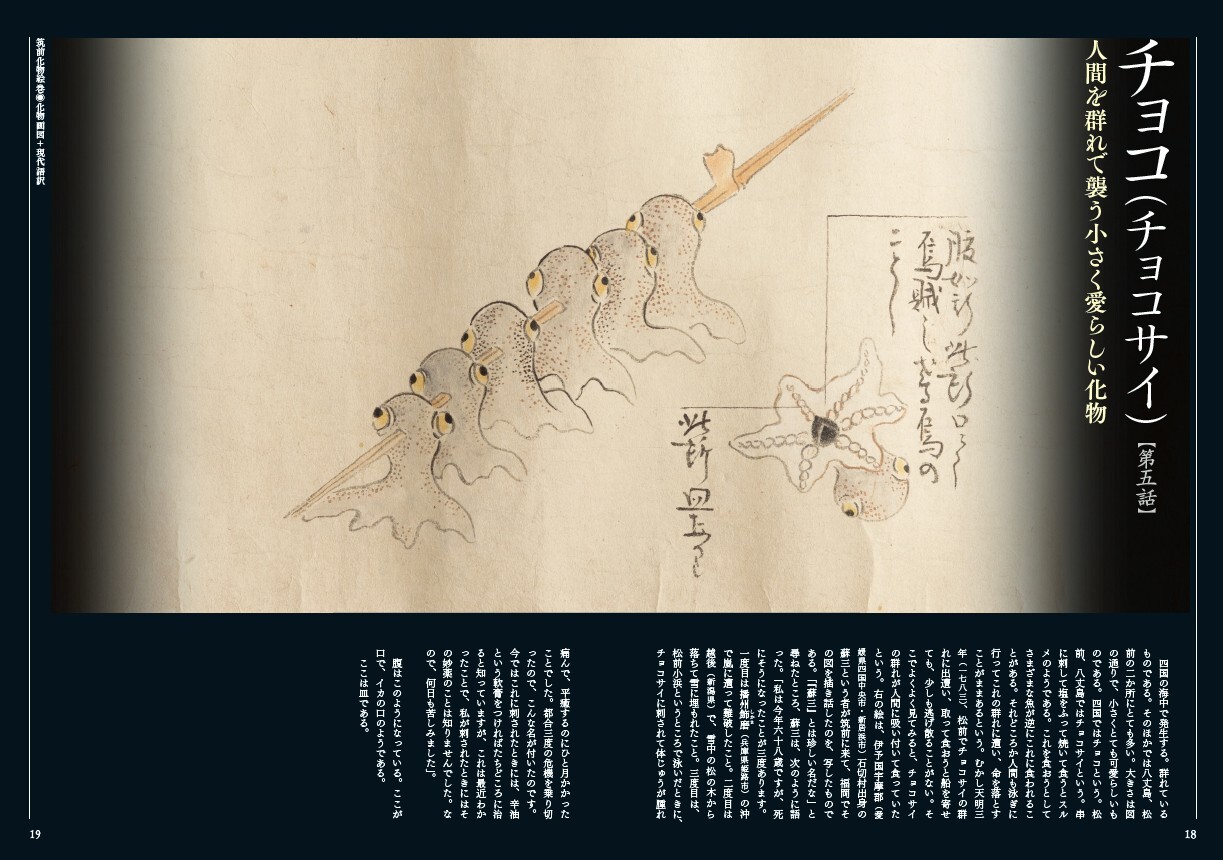 チョコ（チョコサイ）［第五話］
人間を群れで襲う小さく愛らしい化物
腹如斯此所口
烏賊
こと
此所皿
四国の海中で発生する。群れている
ものである。そのほかでは八丈島、松
前の二か所にとても多い。大きさは図
の通りで、小さくとても可愛らしいも
のである。四国ではチョコという。松
前、八丈島ではチョコサイという。串
に刺して塩をふって焼いて食うとスル
メのようである。これを食おうとして
さまざまな魚が逆にこれに食われるこ
とがある。それどころか人間も泳ぎに
行ってこれの群れに遭い、命を落とす
ことがままあるという。むかし天明三
年（一七八三）、松前でチョコサイの群
れに出遭い、取って食おうと船を寄せ
ても、少しも逃げ散ることがない。そ
こでよくよく見てみると、チョコサイ
の群れが人間に吸い付いて食っていた
という。右の絵は、伊予国宇摩郡（愛
媛県四国中央市・新居浜市）石切村出身の
蘇三という者が筑前に来て、福岡でそ
の図を描き話したのを、写したもので
ある。「「蘇三」とは珍しい名だな」と
尋ねたところ、蘇三は、次のように語
った。「私は今年六十八歳ですが、死
にそうになったことが三度あります。
一度目は播州飾磨（兵庫県姫路市）の沖
で嵐に遭って難破したこと。二度目は
越後（新潟県）で、雪中の松の木から
落ちて雪に埋もれたこと。三度目は、
松前小浜というところで泳いだときに、
チョコサイに刺されて体じゅうが腫れ
痛んで、平癒するのにひと月かかった
ことでした。都合三度の危機を乗り切
ったので、こんな名が付いたのです。
今ではこれに刺されたときには、辛油
という軟膏をつければたちどころに治
ると知っていますが、これは最近わか
ったことで、私が刺されたときにはそ
の妙薬のことは知りませんでした。な
ので、何日も苦しみました」。
腹はこのようになっている。ここが
口で、イカの口のようである。
ここは皿である。
筑前化物絵巻◉化物画図＋現代語訳
18
19